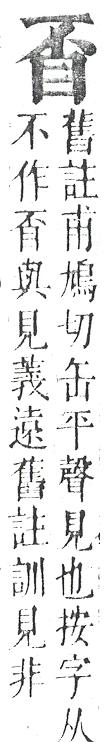 舊註甫鳩切缶平聲見也按字从
不作與見義遠舊註訓見非